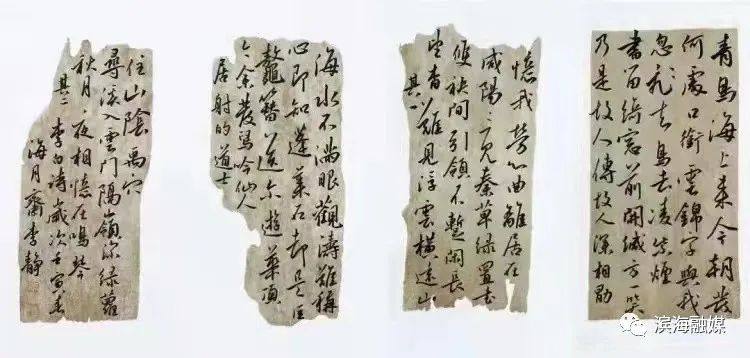 青鳥海上来今朝發
何處口銜雲錦字與我
忽飛去鳥去凌紫煙
書留綺窗前開緘方一笑
乃是故人傳故人深相勖
憶我勞心曲離居在
咸陽三見秦草綠置書
雙袂間引領不暫閑長
望杳難見浮雲橫遠山
其一
海水不滿眼觀濤難稱
心即知蓬莱石却是巨
鼇簪送尔遊華頂
令余發舄吟仙人
居射的道士
住山陰禹穴
尋溪入雲門隔嶺深綠蘿
秋月夜相憶在鳴琴
其二 李白詩歲次壬寅春
海月齋李静
滨海融媒